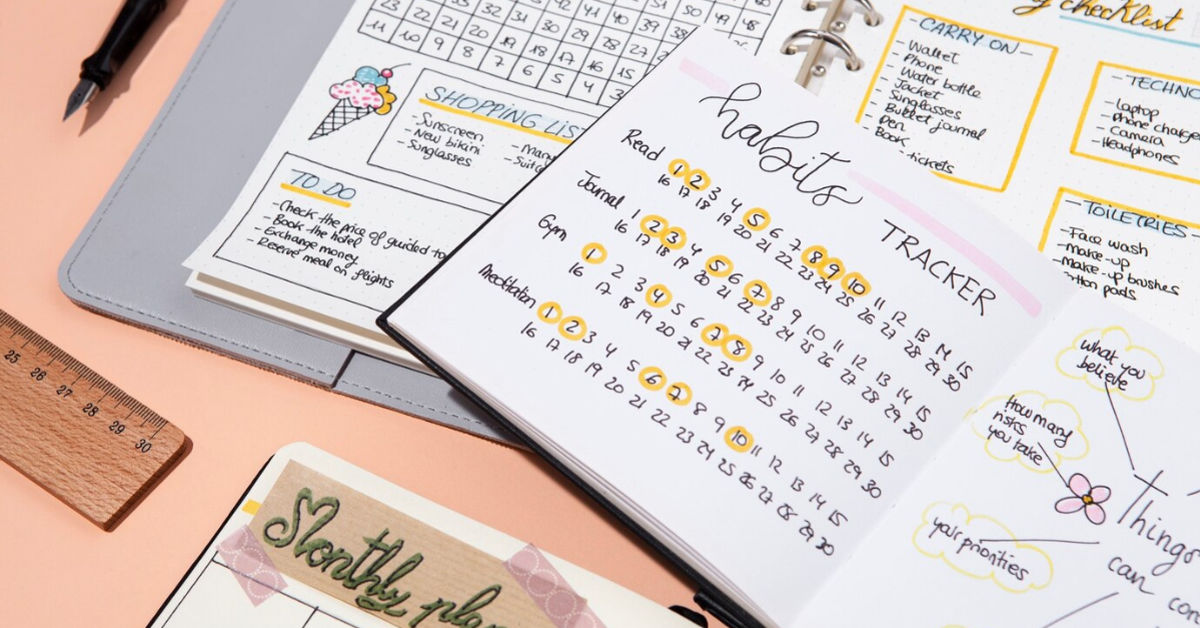 51 50 49 48
23 22 33 32 31 30 29 28 27
11 10 9 8 7 6 5 4 3
19 18 17 16 15
SHOPPING LIS
- Sunscreen
- New bikini
- Sunglasses
TO DO
- Check the price of guided to
- Book the hotel
- Exchange money
- Reserve meal on flights
checklist
- CARRY ON -
- Wallet
- Phone
- Water bottle
- Jacket
- Sunglasses
- Bullet journal
- Pen
- Book
tickets
- TECHNO
- Laptop
- Phone charge
- Camera
- Headphones
- TOILETRIES -
- Face wash
- Make-up
- Make-up brushes
tton pads
habits
TRACKER
Read 1 2 3 4 5 6 7 8 9 10 11 12 13 14 15
16 17 18 19 20 21 22 23 24 25 26 27 28 29 30
Journal 1 2 3 4 5 6 7 8 9 10 11 12 13 14 15
16 17 18 19 20 21 22 23 24 25 26 27 28 29 30
Gym 1 2 3 4 5 6 7 8 9 10 11 12 13 14 15
16 17 18 19 20 21 22 23 24 25 26 27 28 29 30
Meditation 1 2 3 4 5 6 7 8 9 10 11 12 13 14 15
16 17 18 19 20 21 22 23 24 25 26 27 28 29 30
what you
believe
How many
risks
you take
your priorities
Things
can con
25 26 27 28 29 30
Monthly plan